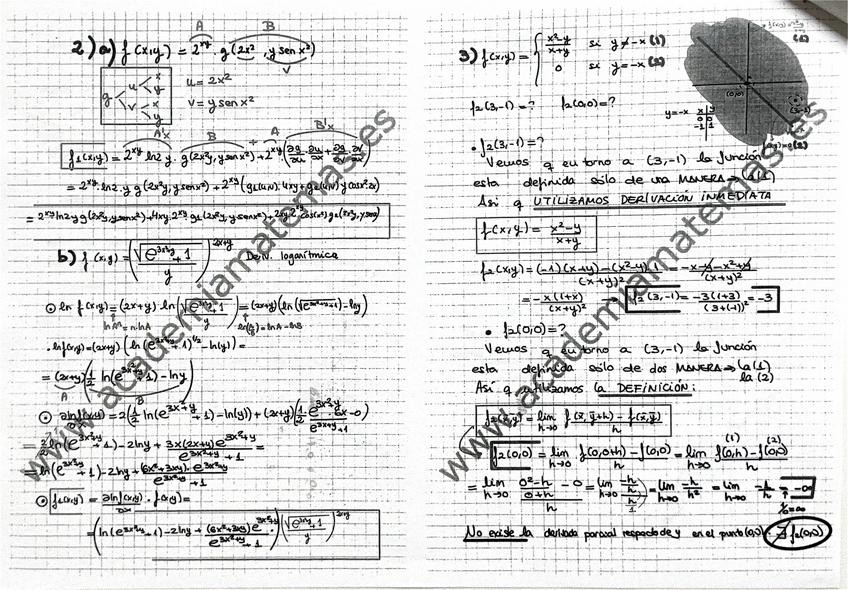 2) a) f(x,y) = 2^xy · g(2x², y sen x²)
A B
u
v
g < u < x y
v < x y
u = 2x²
v = y sen x²
A'x B A B'x
f1(x,y) = 2^xy ln2 y · g(2x²y, y sen x²) + 2^xy (∂g/∂u · ∂u/∂x + ∂g/∂v · ∂v/∂x)
= 2^xy · ln2 · y g(2x²y, y sen x²) + 2^xy (g1(u,v) · 4xy + g2(u,v) y cos x² · 2x)
= 2^xy ln2 y g(2x²y, y sen x²) + 4xy · 2^xy g1(2x²y, y sen x²) + 2xy 2^xy cos(x²) g2(2x²y, y sen x²)
b) f(x,y) = (√(e^3x²y + 1) / y)^2x+y Deriv. logarítmica
⊙ ln f(x,y) = (2x+y) · ln(√(e^3x²y + 1) / y) = (2x+y)(ln(√(e^3x²+y + 1)) − ln y)
ln Aⁿ = n·lnA ln(A/B) = lnA − lnB
· ln f(x,y) = (2x+y) (ln(e^3x²+y + 1)^1/2 − ln(y)) =
= (2x+y) (1/2 ln(e^3x²+y + 1) − ln y)
A B
⊙ ∂ln f(x,y)/∂x = 2(1/2 ln(e^3x²+y + 1) − ln(y)) + (2x+y)(1/2 e^3x²+y · 6x / e^3x²+y + 1 − 0)
= 2/2 ln(e^3x²+y + 1) − 2 ln y + 3x(2x+y) e^3x²+y / e^3x²+y + 1 =
= ln(e^3x²+y + 1) − 2 ln y + (6x² + 3xy) · e^3x²+y / e^3x²+y + 1
⊙ f1(x,y) = ∂ln f(x,y)/∂x · f(x,y) =
= (ln(e^3x²+y + 1) − 2 ln y + (6x² + 3xy) e^3x²+y / e^3x²+y + 1) · (√(e^3x²y + 1) / y)^2x+y
3) f(x,y) = { x²−y / x+y si y ≠ −x (1)
0 si y = −x (2)
(1)
(0,0)
(3,-1)
y = −x
x | y
0 | 0
−1 | 1
f2(3,−1) = ? f2(0,0) = ?
• f2(3,−1) = ?
Vemos q en torno a (3,−1) la función
esta definida sólo de una MANERA → (1)
Así q UTILIZAMOS DERIVACIÓN INMEDIATA
f(x,y) = x²−y / x+y
f2(x,y) = (−1)(x+y) − (x²−y) · 1 / (x+y)² = −x−y−x²+y / (x+y)²
= −x(1+x) / (x+y)² → f2(3,−1) = −3(1+3) / (3+(−1))² = −3
• f2(0,0) = ?
Vemos q en torno a (3,−1) la función
esta definida sólo de dos MANERAS → la (1)
la (2)
Así q utilizamos la DEFINICIÓN:
f2(x̄,ȳ) = lim h→0 f(x̄, ȳ+h) − f(x̄,ȳ) / h
f2(0,0) = lim h→0 f(0,0+h) − f(0,0) / h = lim h→0 f(0,h) − f(0,0) / h
(1) (2)
= lim h→0 0²−h / 0+h − 0 / h = lim h→0 −h/h / h/1 = lim h→0 −h/h² = lim h→0 −1/h = −∞
1/0 = ∞
No existe la derivada parcial respecto de y en el punto (0,0) ∄ f2(0,0)
www.academiamatemas.es
www.academiamatemas.es